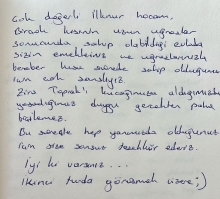 Çok değerli İlknur hocam,
Birçok kesimin uzun uğraşlar
sonucunda sahip olabildiği evlada
sizin emekleriniz ve uğraşlarınızla
beraber kısa sürede sahip olduğumuz
için çok şanslıyız.
Zira Toprak'ı kucağımıza aldığımızda
yaşadığımız duygu gerçekten paha
biçilemez.
Bu süreçte hep yanımızda olduğunuz
için size sonsuz teşekkür ederiz.
İyi ki varsınız...
İkinci turda görüşmek üzere ;)